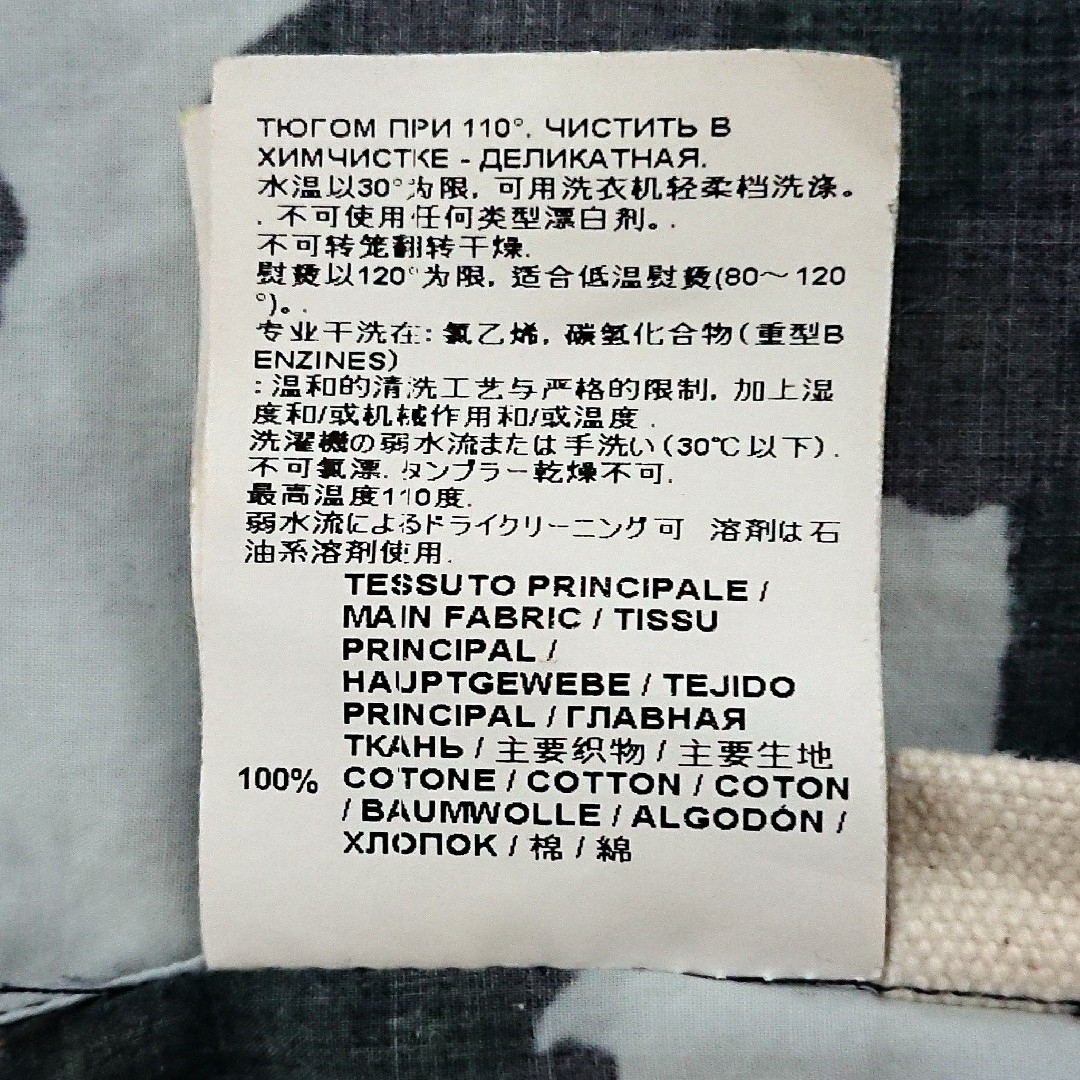 ТЮГОМ ПРИ 110°. ЧИСТИТЬ В
ХИМЧИСТКЕ - ДЕЛИКАТНАЯ.
水温以30°为限, 可用洗衣机轻柔档洗涤。
. 不可使用任何类型漂白剂。.
不可转笼翻转干燥.
熨烫以120°为限, 适合低温熨烫(80～120
°)。.
专业干洗在: 氯乙烯, 碳氢化合物(重型B
ENZINES)
: 温和的清洗工艺与严格的限制, 加上湿
度和/或机械作用和/或温度.
洗濯機の弱水流または手洗い(30℃以下).
不可氯漂. タンブラー乾燥不可.
最高温度110度.
弱水流によるドライクリーニング可 溶剤は石
油系溶剤使用.
TESSUTO PRINCIPALE /
MAIN FABRIC / TISSU
PRINCIPAL /
HAUPTGEWEBE / TEJIDO
PRINCIPAL / ГЛАВНАЯ
ТКАНЬ / 主要织物 / 主要生地
100% COTONE / COTTON / COTON
/ BAUMWOLLE / ALGODÓN /
ХЛОПОК / 棉 / 綿